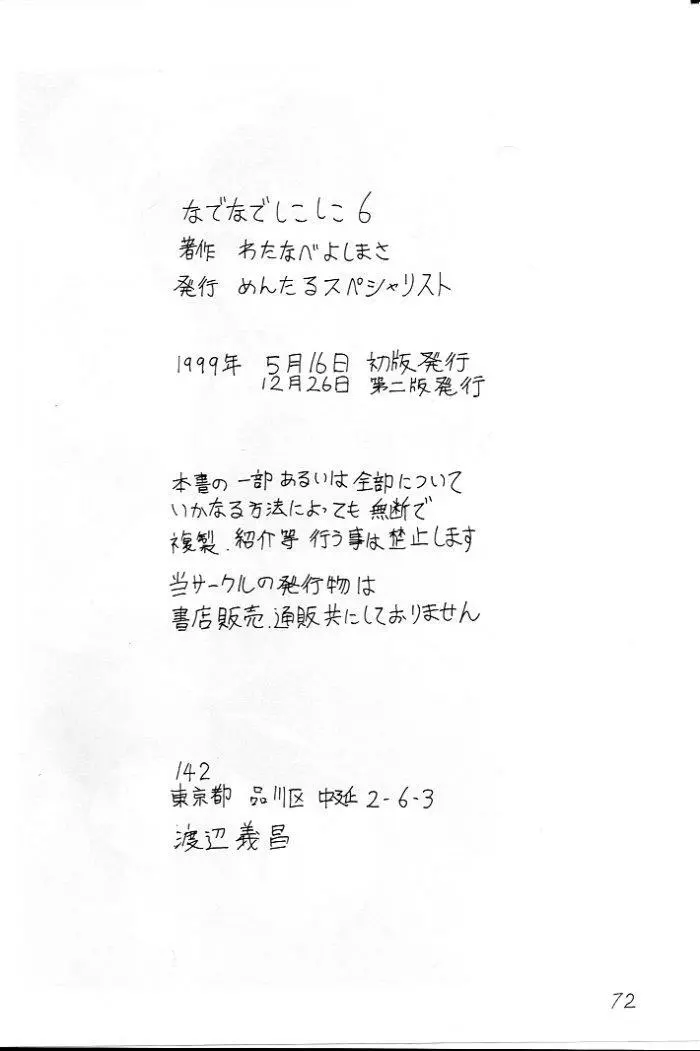 なでなでしこしこ6
著作 わたなべよしまさ
発行 めんたるスペシャリスト
1999年 5月16日 初版発行
12月26日 第二版発行
本書の一部あるいは全部について
いかなる方法によっても無断で
複製、紹介等行う事は禁止します
当サークルの発行物は
書店販売、通販共にしておりません
142
東京都 品川区 中延2-6-3
渡辺義昌
72